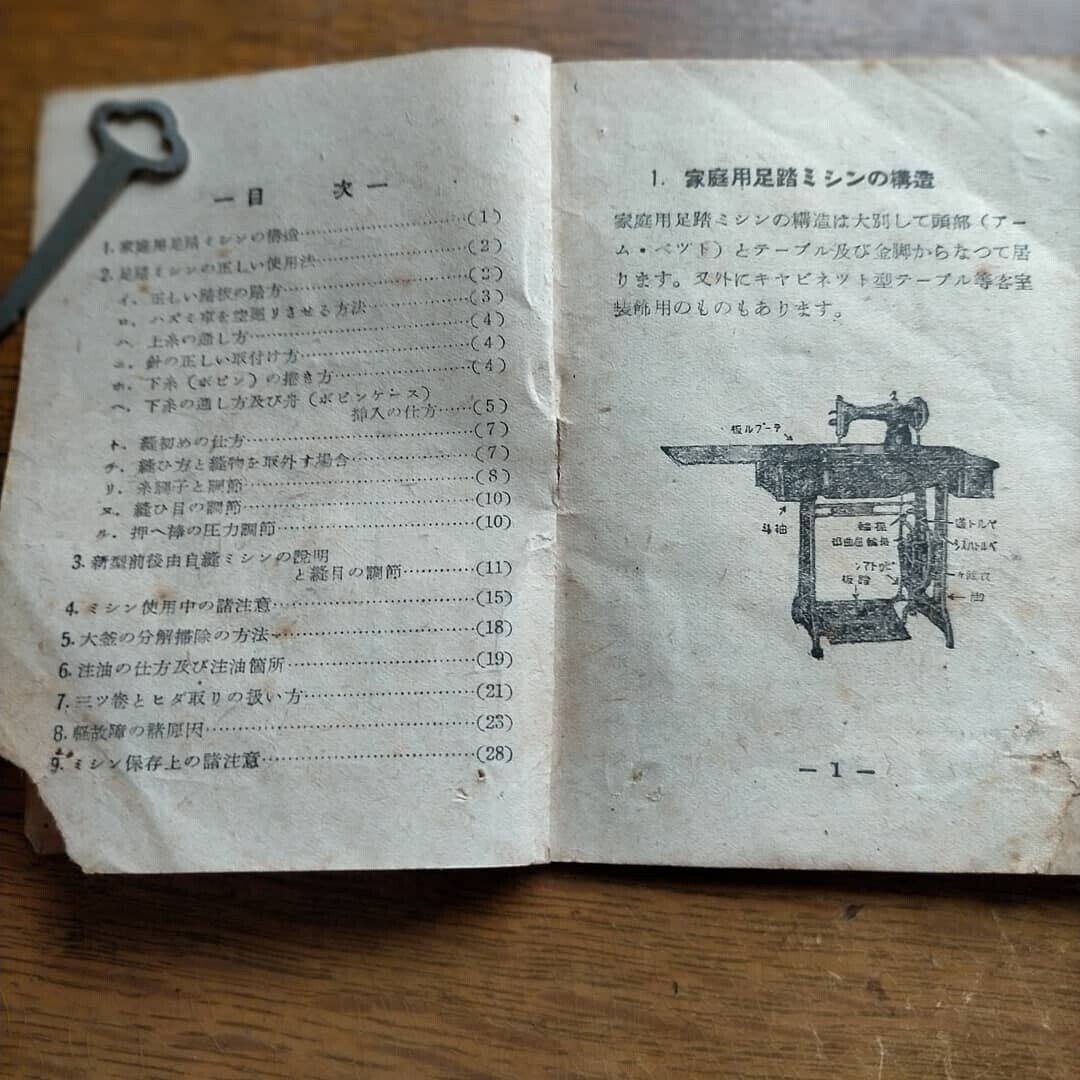 ー目 次ー
1. 家庭用足踏ミシンの構造…………(1)
2. 足踏ミシンの正しい使用法…………(2)
イ. 正しい踏板の踏方…………(2)
ロ. ハズミ車を空廻りさせる方法…………(3)
ハ. 上糸の通し方…………(4)
ニ. 針の正しい取付け方…………(4)
ホ. 下糸(ボビン)の捲き方…………(4)
ヘ. 下糸の通し方及び舟(ボビンケース)
挿入の仕方……(5)
ト. 縫初めの仕方…………(7)
チ. 縫ひ方と縫物を取外す場合…………(7)
リ. 糸調子と調節…………(8)
ヌ. 縫ひ目の調節…………(10)
ル. 押へ棒の圧力調節…………(10)
3. 新型前後自由縫ミシンの説明
と縫目の調節…………(11)
4. ミシン使用中の諸注意…………(15)
5. 大釜の分解掃除の方法…………(18)
6. 注油の仕方及び注油箇所…………(19)
7. 三ツ巻とヒダ取りの扱い方…………(21)
8. 軽故障の諸原因…………(23)
9. ミシン保存上の諸注意…………(28)
1. 家庭用足踏ミシンの構造
家庭用足踏ミシンの構造は大別して頭部(アー
ム・ベツト)とテーブル及び金脚からなつて居
ります。又外にキヤビネツト型テーブル等客室
装飾用のものもあります。
板ルブーテ
斗抽
板踏
脚
― 1 ―